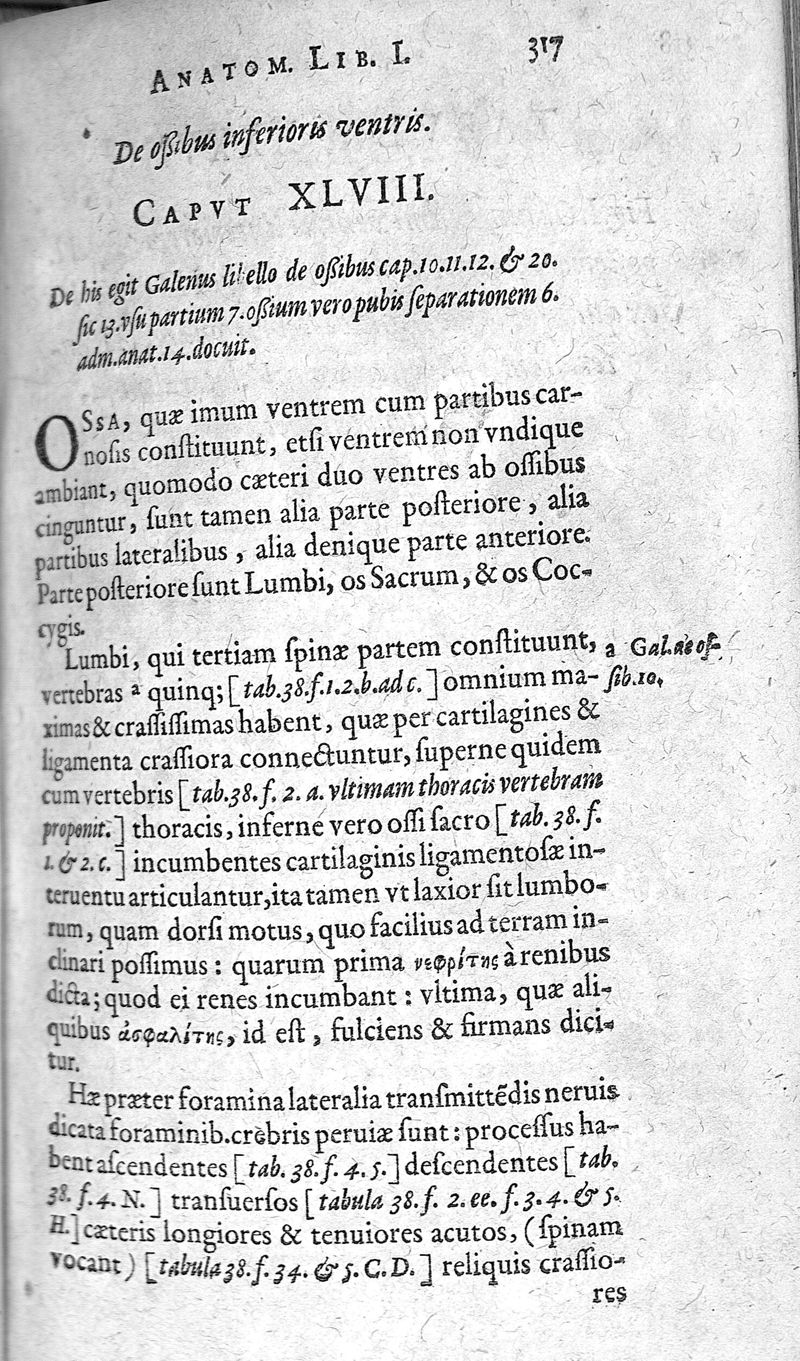 ANATOM. LIB. I. 317
De oſsibus inferioris ventris.
CAPVT XLVIII.
De his egit Galenus libello de oſsibus cap.10.11.12. & 20.
ſic 13.vſu partium 7.oſsium vero pubis ſeparationem 6.
adm.anat.14.docuit.
OSSA, quæ imum ventrem cum partibus car-
noſis conſtituunt, etſi ventrem non vndique
ambiant, quomodo cæteri duo ventres ab oſſibus
cinguntur, ſunt tamen alia parte poſteriore, alia
partibus lateralibus, alia denique parte anteriore.
Parte poſteriore ſunt Lumbi, os Sacrum, & os Coc-
cygis.
Lumbi, qui tertiam ſpinæ partem conſtituunt,
a Gal. de oſ-
vertebras ᵃ quinq; [tab.38.f.1.2.b.ad c.] omnium ma-
ſib.10.
ximas & craſſiſſimas habent, quæ per cartilagines &
ligamenta craſſiora connectuntur, ſuperne quidem
cum vertebris [tab.38.f. 2. a. vltimam thoracis vertebram
proponit.] thoracis, inferne vero oſſi ſacro [tab. 38. f.
1. & 2. c.] incumbentes cartilaginis ligamentoſæ in-
teruentu articulantur, ita tamen vt laxior ſit lumbo-
rum, quam dorſi motus, quo facilius ad terram in-
clinari poſſimus: quarum prima νεφρίτης à renibus
dicta; quod ei renes incumbant: vltima, quæ ali-
quibus ἀσφαλίτης, id eſt, fulciens & firmans dici-
tur.
Hæ præter foramina lateralia tranſmittẽdis neruis
dicata foraminib. crebris peruiæ ſunt: proceſſus ha-
bent aſcendentes [tab. 38. f. 4. 5.] deſcendentes [tab.
38. f. 4. N.] tranſuerſos [tabula 38. f. 2. ee. f. 3. 4. & 5.
H.] cæteris longiores & tenuiores acutos, (ſpinam
vocant) [tabula 38. f. 34. & 5. C. D.] reliquis craſſio-
res